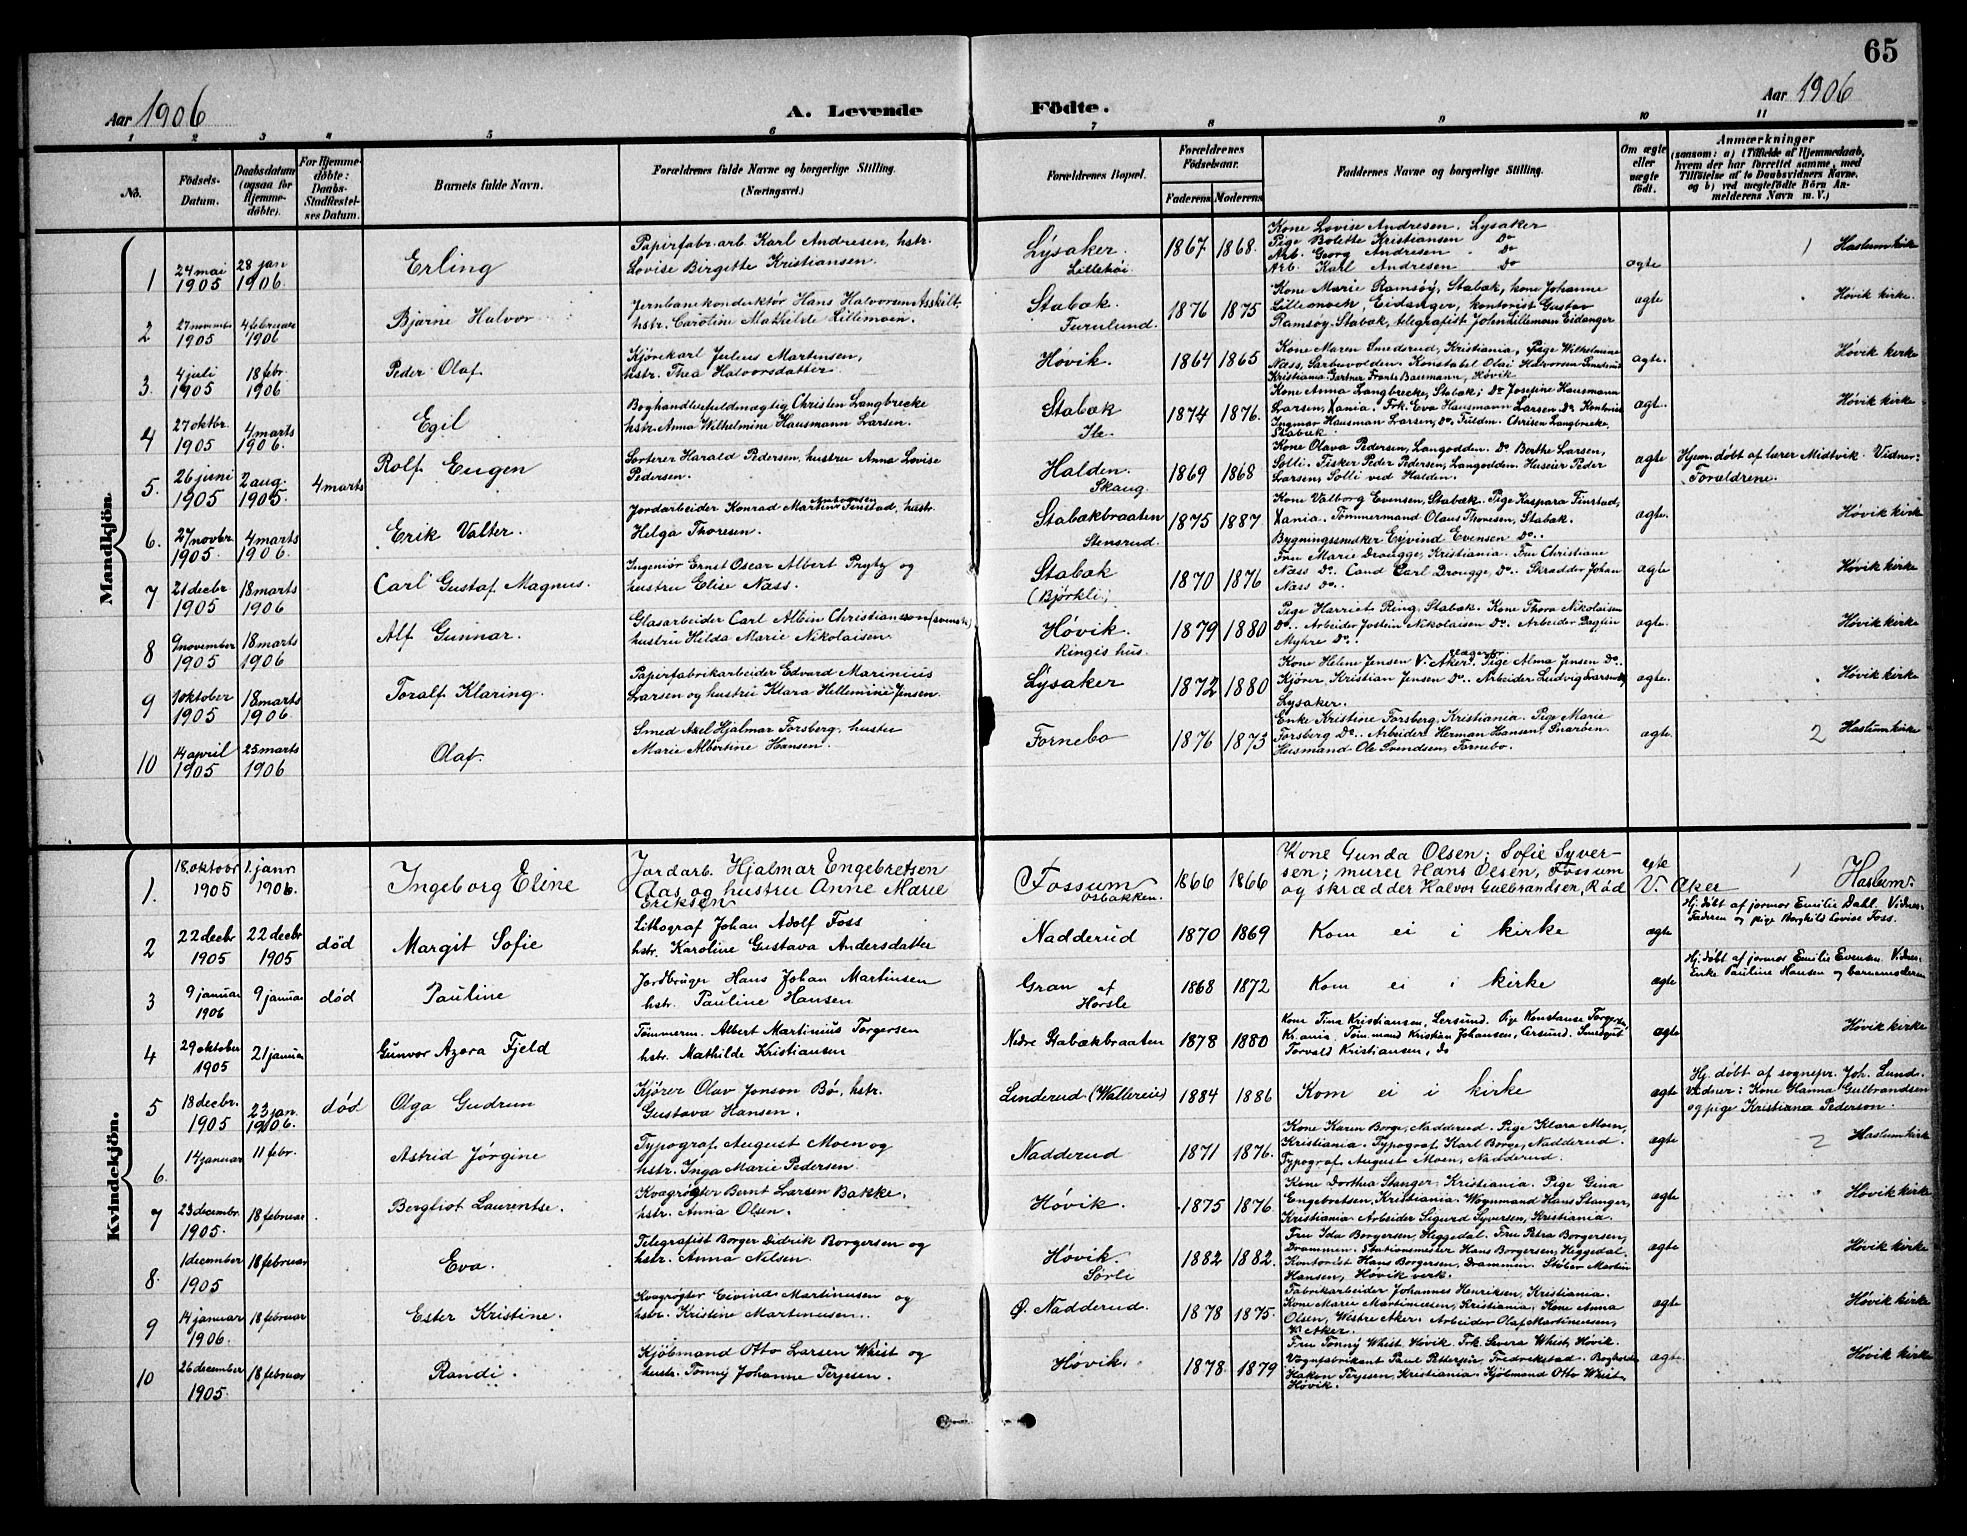 65
Aar 1906 A. Levende Födte. Aar 1906
1 2 3 4 5 6 7 8 9 10 11
No.
Födsels-
Datum.
Daabsdatum
(ogsaa for
Hjemme-
døbte).
For Hjemme-
døbte:
Daabs-
Stadfæstel-
ses Datum.
Barnets fulde Navn.
Forældrenes fulde Navne og borgerlige Stilling.
(Næringsvei.)
Forældrenes Bopæl.
Forældrenes
Födselsaar.
Faderens Moderens
Faddernes Navne og borgerlige Stilling.
Om ægte
eller
uægte
født.
Anmærkninger
(saasom: a) i Tilfælde af Hjemmedaab,
hvem der har forrettet samme, med
Tilföielse af to Daabsvidners Navne,
og b) ved uægtefødte Börn An-
melderens Navn m. V.)
Mandkjön.
1 24 mai 1905 28 jan 1906. Erling
Papirfabr. arb. Karl Andresen, hstr.
Lovise Birgitte Kristiansen.
Lysaker. Lillehöi 1867 1868.
Kone Lovise Andresen, Lysaker
Pige Bolette Kristiansen Do
Arb. Georg Andresen Do
Arb. Karl Andresen Do
ægte 1 Haslum kirke
2 27 novembr 1905 4 februar 1906 Bjarne Halvor
Jernbanekonduktør Hans Halvorsen Asskilt,
hstr. Caroline Mathilde Lillemoen.
Stabæk. Furulund. 1876 1875
Kone Marie Ramsöy, Stabæk, kone Johanne
Lillemoen Eidanger, kontorist Gustav
Ramsöy, Stabæk, telegrafist John Lillemoen Eidanger
ægte Høvik kirke.
3. 4 juli 1905 18 febr. 1906 Peder Olaf
Kjörekarl Julius Martinsen,
hstr. Thea Halvorsdatter
Høvik. 1864 1865
Kone Maren Smedsrud, Kristiania, Pige Wilhelmine
Næss, Sarbuvolden. Konstabel Olai Halvorsen Smedsrud
Kristiania. Gartner Frants Baumann, Høvik
ægte. Høvik kirke
4 27 oktbr. 1905 4 marts 1906. Egil
Boghandlerfuldmægtig Christen Langbrecke
hstr. Anna Wilhelmine Hausmann Larsen.
Stabæk 1874 1876.
Kone Anna Langbrecke, Stabæk; Do Josefine Hausmann
Larsen, Xania. Frk. Eva Hausmann Larsen Do. Kontorist
Ingmar Hausman Larsen, Do. Fuldm. Chrisen Langbrecke,
Stabæk.
ægt. Høvik kirke
5. 26 juni 1905 2 aug. 1905. 4 marts Rolf Eugen
Sorterer Harald Pedersen, hustru Anna Lovise
Pedersen.
Halden. Skaug. 1869 1868
Kone Olava Pedersen, Langodden. Do Berthe Larsen,
Solli. Fisker Peder Pedersen, Langodden. Huseier Peder
Larsen, Solli ved Halden.
ægte Hjem. döbt af lærer Midtvik. Vidner:
Forældrene.
6. 27 novbr. 1905. 4 marts 1906. Erik Valter.
Jordarbeider Konrad Martin Antonsen Finstad, hustr.
Helga Thoresen.
Stabækbraaten Stensrud. 1875 1887
Kone Valborg Evensen, Stabæk. Pige Kaspara Finstad,
Xania. Tömmermand Olaus Thoresen, Stabæk.
Bygningssnedker Eyvind Evensen Do..
ægte. Høvik kirke
7 21 decbr 1905 18 marts 1906 Carl Gustaf Magnus.
Ingeniør Ernst Oscar Albert Prytz og
hustru Elise Næss.
Stabæk (Bjørkli) 1870 1876
Fru Marie Drougge, Kristiania. Fru Christiane
Næss Do. Cand Carl Drougge, Do.. Skrædder Johan
Næss Do..
ægte Høvik kirke
8 9 november 1905 18 marts 1906 Alf Gunnar.
Glasarbeider Carl Albin Christiansson (svensk)
hustru Hilda Marie Nikolaisen.
Høvik. Ringis hus. 1879 1880
Pige Harriet Ring, Stabæk. Kone Thora Nikolaisen
Do.. Arbeider Jostein Nikolaisen Do. Arbeider Dagfin
Myhre Do.
ægte. Høvik kirke
9 1 oktober 1905 18 marts 1906. Toralf Klaring.
Papirfabrikarbeider Edvard Marinius
Larsen og hustru Klara Hellemine Jensen.
Lysaker 1872 1880
Kone Helene Jensen V. Aker. Pige Alma Jensen Do..
Kjörer, Kristian Jensen Do.. Arbeider Ludvig Larsen
Lysaker.
ægte. Høvik kirke
10 14 april 1905 25 marts 1906 Olaf.
Smed Axel Hjalmar Forsberg, hustru
Marie Albertine Hansen.
Fornebo 1876 1873
Enke Kristine Forsberg, Kristiania. Pige Marie
Forsberg Do.. Arbeider Herman Hansen, Snarøen.
Husmand Ole Svendsen, Fornebo.
ægte. 2 Haslum kirke
Kvindekjön.
1. 18. oktobr 1905 1. janr. 1906. Ingeborg Eline
Jordarb. Hjalmar Engebretsen
Aas og hustru Anne Marie
Eriksen
Fossum Osbakken. 1866 1866
Kone Gunda Olsen; Sofie Syver-
sen; murer Hans Olsen, Fossum
og skrædder Halvor Gulbrandsen, Röd V. Aker
ægte 1 Haslum.
2 22 decbr 1905 22 decbr 1905 død Margit Sofie
Lithograf Johan Adolf Foss
hstr. Karoline Gustava Andersdatter
Nadderud 1870 1869 Kom ei i kirke ægte
Hj. döbt af jormor Emilie Dahl. Vidner
Faderen og pige Borghild Lovise Foss.
3 9 januar 1906 9 januar død Pauline
Jordbruger Hans Johan Martinsen
hstr. Pauline Hansen
Gran af Horsle 1868 1872 Kom ei i kirke ægte
Hj. döbt af jormor Emilie Evensen. Vidner
Enke Pauline Hansen og barnemoderen
4 29 oktober 1905 21 januar Gunvor Azora Fjeld
Tömmerm. Albert Martinius Torgersen
hstr. Mathilde Kristiansen
Nedre Stabækbraaten 1878 1880
Kone Tina Kristiansen, Lersund. Pige Konstanse Torgersen,
Kr.ania. Töm.mand Kristian Johansen, Lersund. Smedgut
Torvald Kristiansen, do
ægte Høvik kirke
5 18 decbr. 1905 23 jan. 1906. død Olga Gudrun
Kjörer Olav Jonson Bö, hstr.
Gustava Hansen.
Linderud (Wallereie) 1884 1886 Kom ei i kirke ægte
Hj. döbt af sognepr. Joh. Lund.
Vidner: Kone Hanna Gulbrandsen
og pige Kristiana Pederson.
6. 14 januar 11 febr. Astrid Jørgine
Typograf August Moen og
hstr. Inga Marie Pedersen.
Nadderud 1871 1876.
Kone Karen Borge, Nadderud. Pige Klara Moen,
Kristiania. Typograf Karl Borge, Nadderud.
Typograf August Moen, Nadderud.
ægte 2 Haslum kirke
7 23 decembr. 1905. 18 februar. Bergliot Laurentse.
Kvægrøgter Bernt Larsen Bakke,
hstr. Anna Olsen.
Høvik. 1875 1876
Kone Dorthea Stanger, Kristiania. Pige Gina
Engebretsen, Kristiania. Wognmand Hans Stanger,
Kristiania. Arbeider Sigurd Syversen, Kristiania.
ægte Høvik kirke
8. 1 december 1905 18 februar Eva.
Telegrafist Borger Didrik Borgersen og
hstr. Anna Nilsen.
Høvik. Sørli 1882 1882.
Fru Ida Borgersen, Heggedal. Fru Petra Borgersen,
Drammen. Stationsmester Hans Borgersen, Heggedal.
Kontorist Hans Borgersen, Drammen. Støber Martin
Hansen, Høvik verk.
ægte Høvik kirke
9 14 januar 1906. 18 februar Ester Kristine.
Kvægrøgter Eivind Martinusen og
hstr. Kristine Martinusen.
Ø. Nadderud. 1878 1875.
Fabrikarbeider Johannes Henriksen, Kristiania.
Kone Marie Martiniusen, Kristiania. Kone Anna
Olsen, Westre Aker. Arbeider Olaf Martinusen,
V. Aker.
ægte Høvik kirke
10 26 december 1905. 18 februar Randi.
Kjöbmand Otto Larsen Whist og
hustr. Tonny Johanne Terjesen.
Høvik. 1878 1879
Fru Tonny Whist, Høvik. Frk. Severa Whist, Høvik.
Vognfabrikant Paul Pettersen, Fredrikstad. Bogholder
Hakon Terjesen, Kristiania. Kjöbmand Otto Whist,
Høvik.
ægte. Høvik kirke